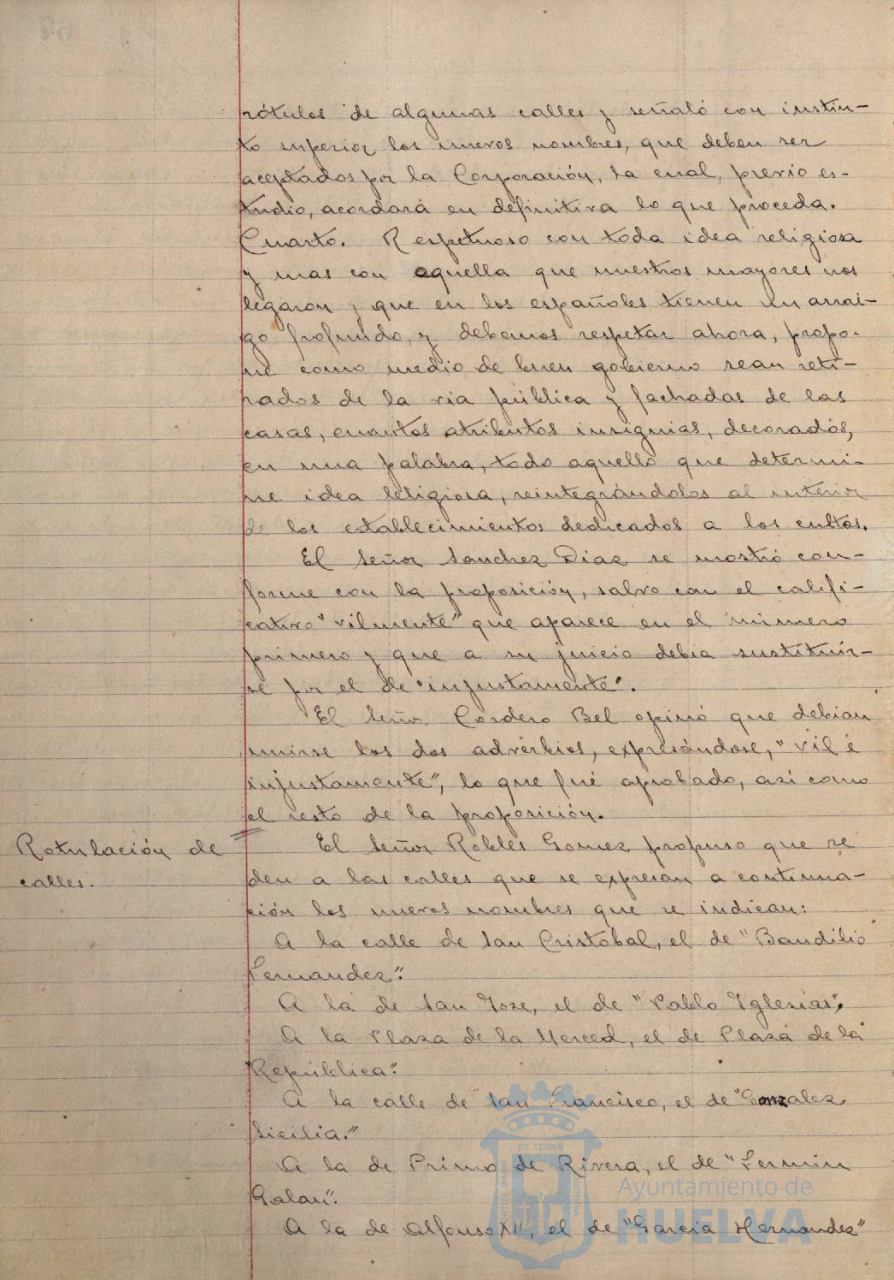 rótulos de algunas calles y señaló con instin-
to superior los nuevos nombres, que deben ser
aceptados por la Corporación, la cual, previo es-
tudio, acordará en definitiva lo que proceda.
Cuarto. Respetuoso con toda idea religiosa
y mas con aquella que nuestros mayores nos
legaron y que en los españoles tienen un arrai-
go profundo, y debemos respetar ahora, propo-
ne como medio de buen gobierno sean reti-
rados de la via pública y fachadas de las
casas, cuantos atributos insignias, decorados,
en una palabra, todo aquello que determi-
ne idea religiosa, reintegrándolos al interior
de los establecimientos dedicados a los cultos.
El Señor Sanchez Diaz se mostró con-
forme con la proposición, salvo con el califi-
cativo "vilmente" que aparece en el número
primero y que a su juicio debia sustituir-
se por el de "injustamente".
El Señor Cordero Bel opinó que debian
unirse los dos adverbios, expresándose, "vil é
injustamente", lo que fué aprobado, así como
el resto de la proposición.
Rotulación de
calles.
El Señor Robles Gomez propuso que se
den a las calles que se expresan a continua-
ción los nuevos nombres que se indican:
A la calle de San Cristobal, el de "Baudilio
Fernandez".
A la de San Jose, el de "Pablo Iglesias",
A la Plaza de la Merced, el de Plaza de la
República".
A la calle de San Francisco, el de "Gonzalez
Sicilia."
A la de Primo de Rivera, el de "Fermin
Galan".
A la de Alfonso XII, el de "Garcia Hernandez"
Ayuntamiento de
HUELVA